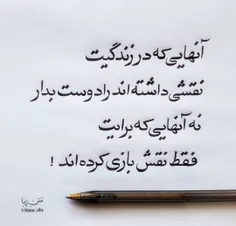 آنهایی که در زندگیت
نقشی داشته اند را دوست بدار
نه آنهایی که برایت
فقط نقش بازی کرده اند !